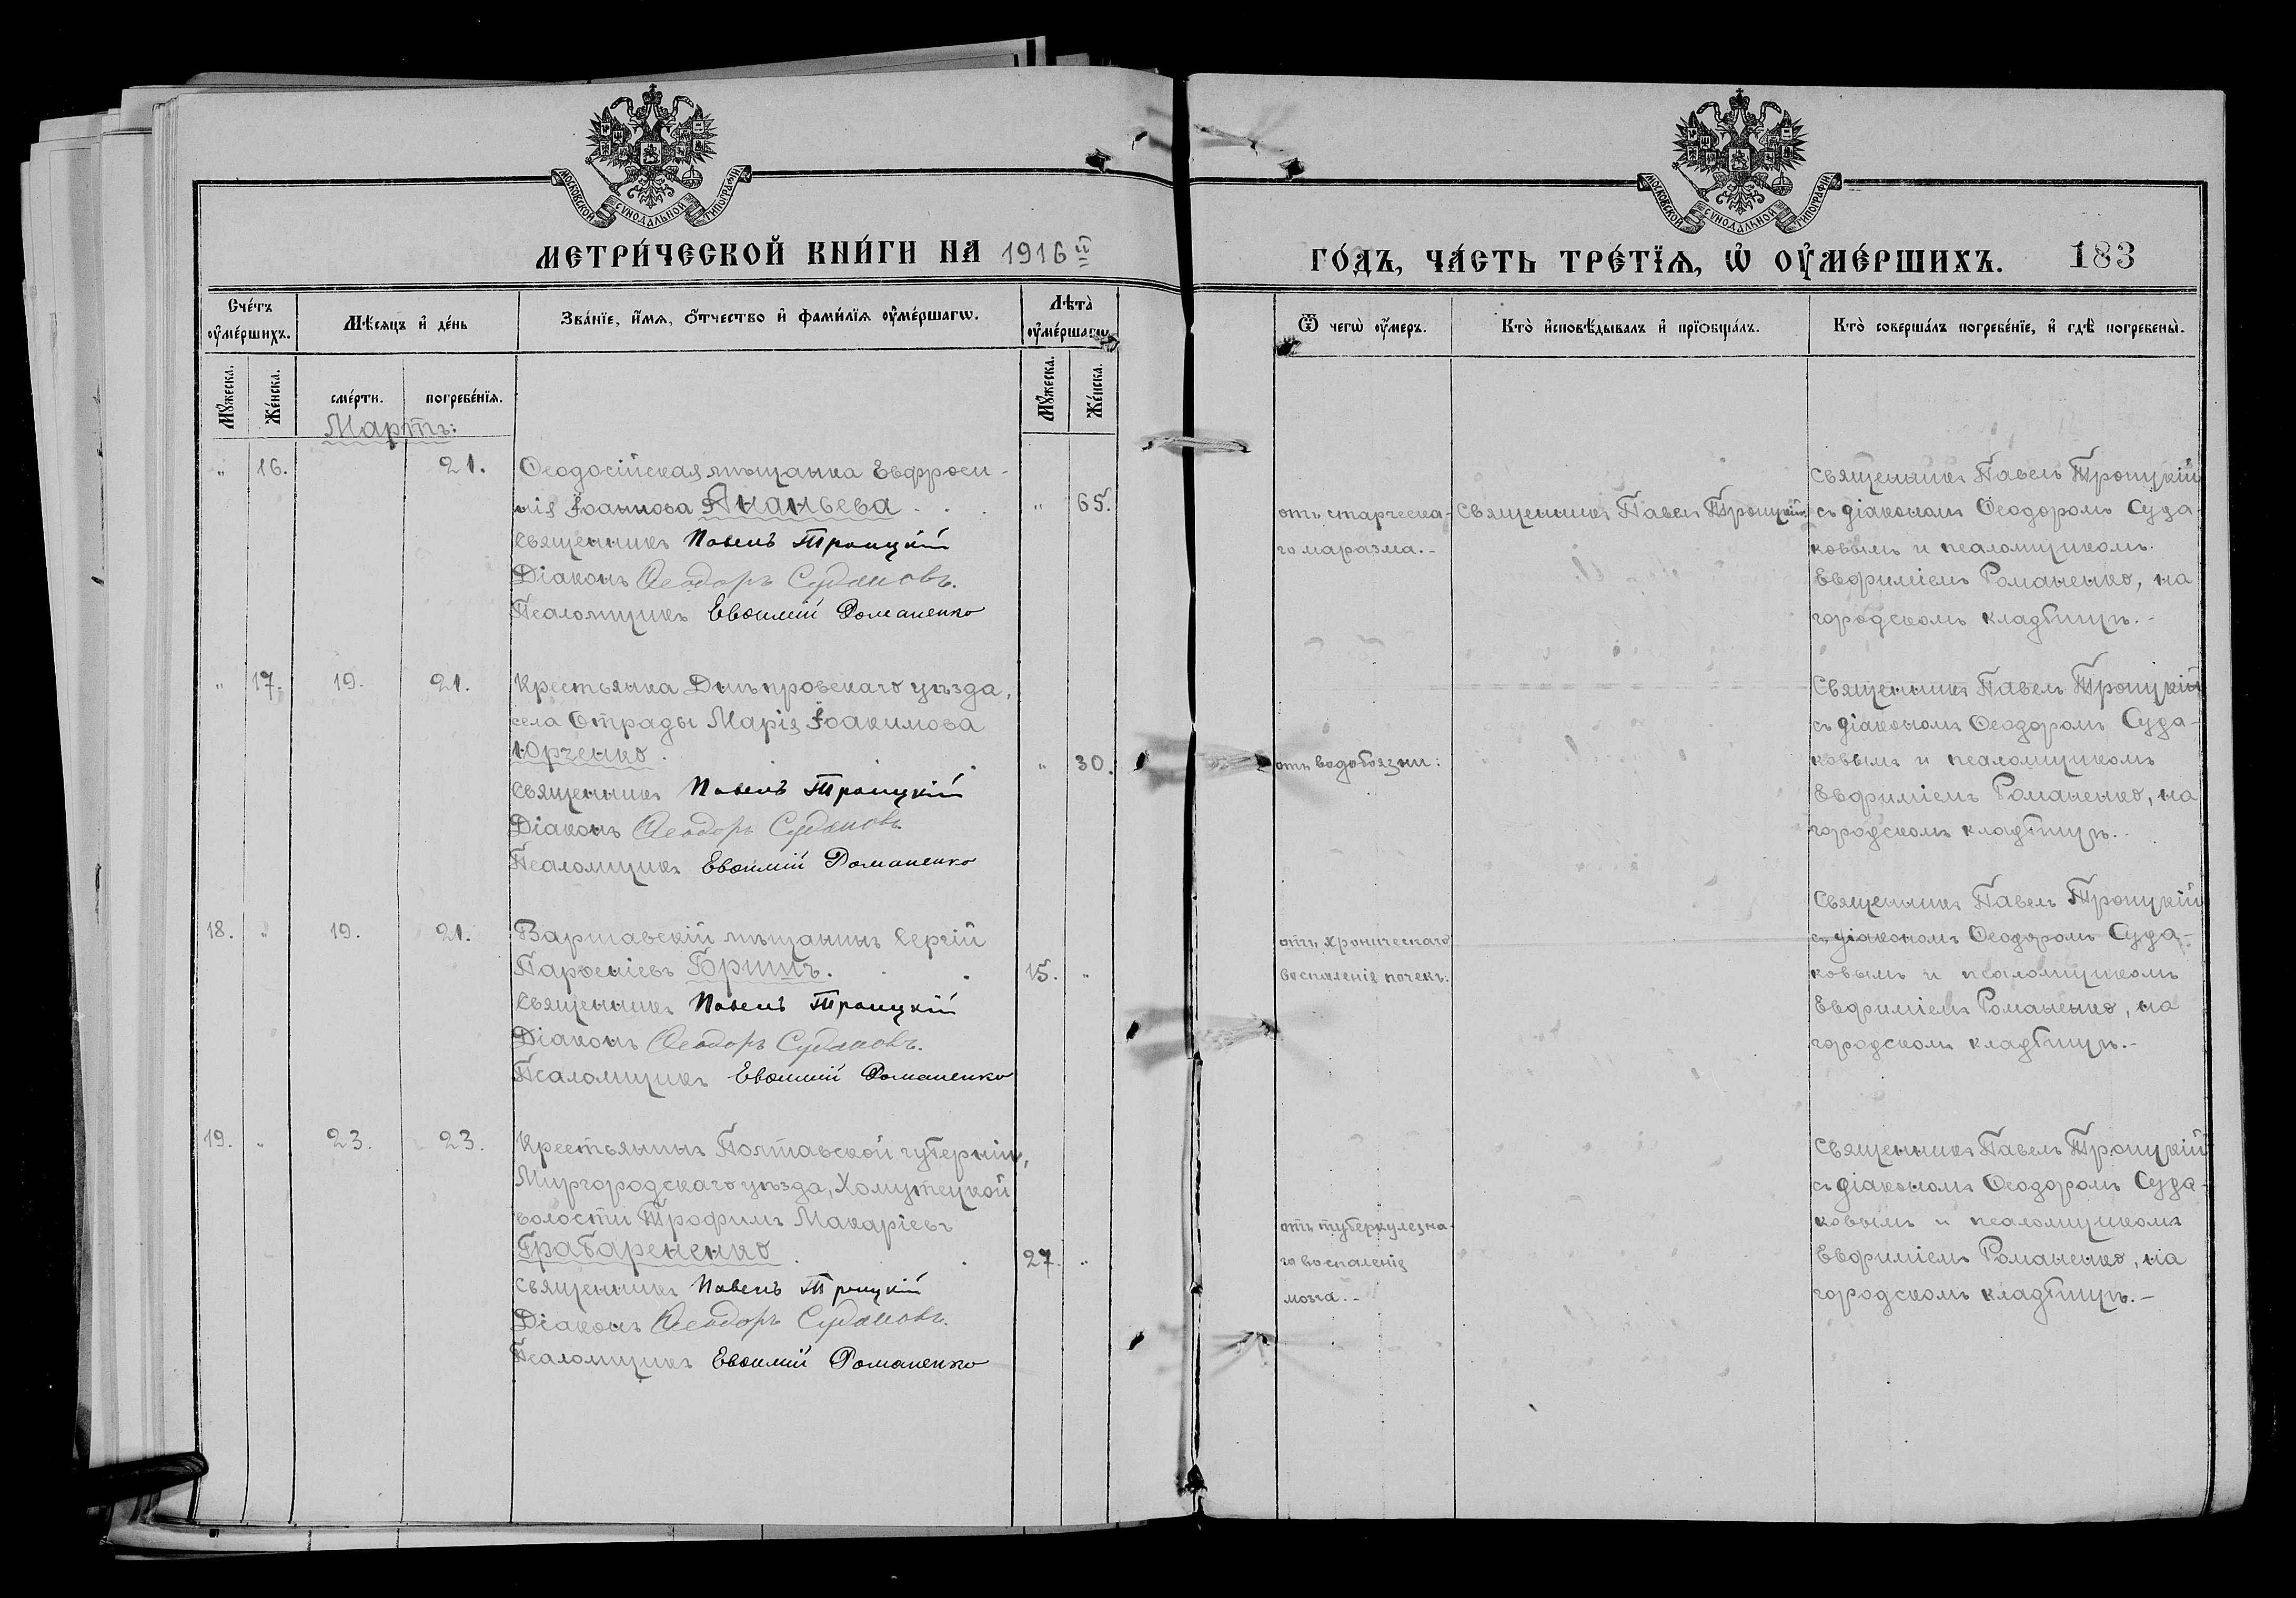 МОСКОВСКОЙ СѴНОДАЛЬНОЙ ТИПОГРАФІИ
МОСКОВСКОЙ СѴНОДАЛЬНОЙ ТИПОГРАФІИ
МЕТРИ́ЧЕСКОЙ КНИ́ГИ НА 1916 й
ГО́ДЪ, ЧА́СТЬ ТРЕ́ТІЯ, Ѡ ОУМЕ́РШИХЪ. 183
Сче́тъ оуме́ршихъ.
Мѣсяцъ и де́нь
Зва́нїе, и́мя, о́тчество и фами́лїя оуме́ршагѡ.
Лѣта̀ оуме́ршагѡ
Ѿ чегѡ̀ оу́меръ.
Кто̀ исповѣ́дывалъ и прїобща́лъ.
Кто̀ соверша́лъ погребе́нїе, и гдѣ̀ погребены̀.
Мꙋ́жеска. Же́нска. сме́рти. погребе́нїя. Мꙋ́жеска. Же́нска.
Мартъ:
" 16. 21. Ѳеодосійская мѣщанка Евфроси-
нія Іоаннова Ананьева . . . " 65.
Священникъ Павелъ Троицкій
Діаконъ Ѳеодоръ Судаковъ.
Псаломщикъ Евѳимій Романенко
отъ старческа-
го маразма.-
Священникъ Павелъ Троицкій
Священникъ Павелъ Троицкій
съ діакономъ Ѳеодоромъ Суда-
ковымъ и псаломщикомъ
Евфиміемъ Романенко, на
городскомъ кладбищѣ.-
" 17. 19. 21. Крестьянка Днѣпровскаго уѣзда,
села Отрады Марія Іоакимова
Юрченко . . " 30.
Священникъ Павелъ Троицкій
Діаконъ Ѳеодоръ Судаковъ.
Псаломщикъ Евѳимій Романенко
отъ водобоязни:
Священникъ Павелъ Троицкій
съ діакономъ Ѳеодоромъ Суда-
ковымъ и псаломщикомъ
Евфиміемъ Романенко, на
городскомъ кладбищѣ.-
18. " 19. 21. Варшавскій мѣщанинъ Сергій
Парѳеніевъ Боришъ. . . 15. "
Священникъ Павелъ Троицкій
Діаконъ Ѳеодоръ Судаковъ.
Псаломщикъ Евѳимій Романенко
отъ хроническаго
воспаленія почекъ.
Священникъ Павелъ Троицкій
съ діакономъ Ѳеодоромъ Суда-
ковымъ и псаломщикомъ
Евфиміемъ Романенко, на
городскомъ кладбищѣ.-
19. " 23. 23. Крестьянинъ Полтавской губерніи,
Миргородскаго уѣзда, Хомутецкой
волости Трофимъ Макаріевъ
Грабаренко . . 27. "
Священникъ Павелъ Троицкій
Діаконъ Ѳеодоръ Судаковъ.
Псаломщикъ Евѳимій Романенко
отъ туберкулезна-
го воспаленія
мозга.-
Священникъ Павелъ Троицкій
съ діакономъ Ѳеодоромъ Суда-
ковымъ и псаломщикомъ
Евфиміемъ Романенко, на
городскомъ кладбищѣ.-